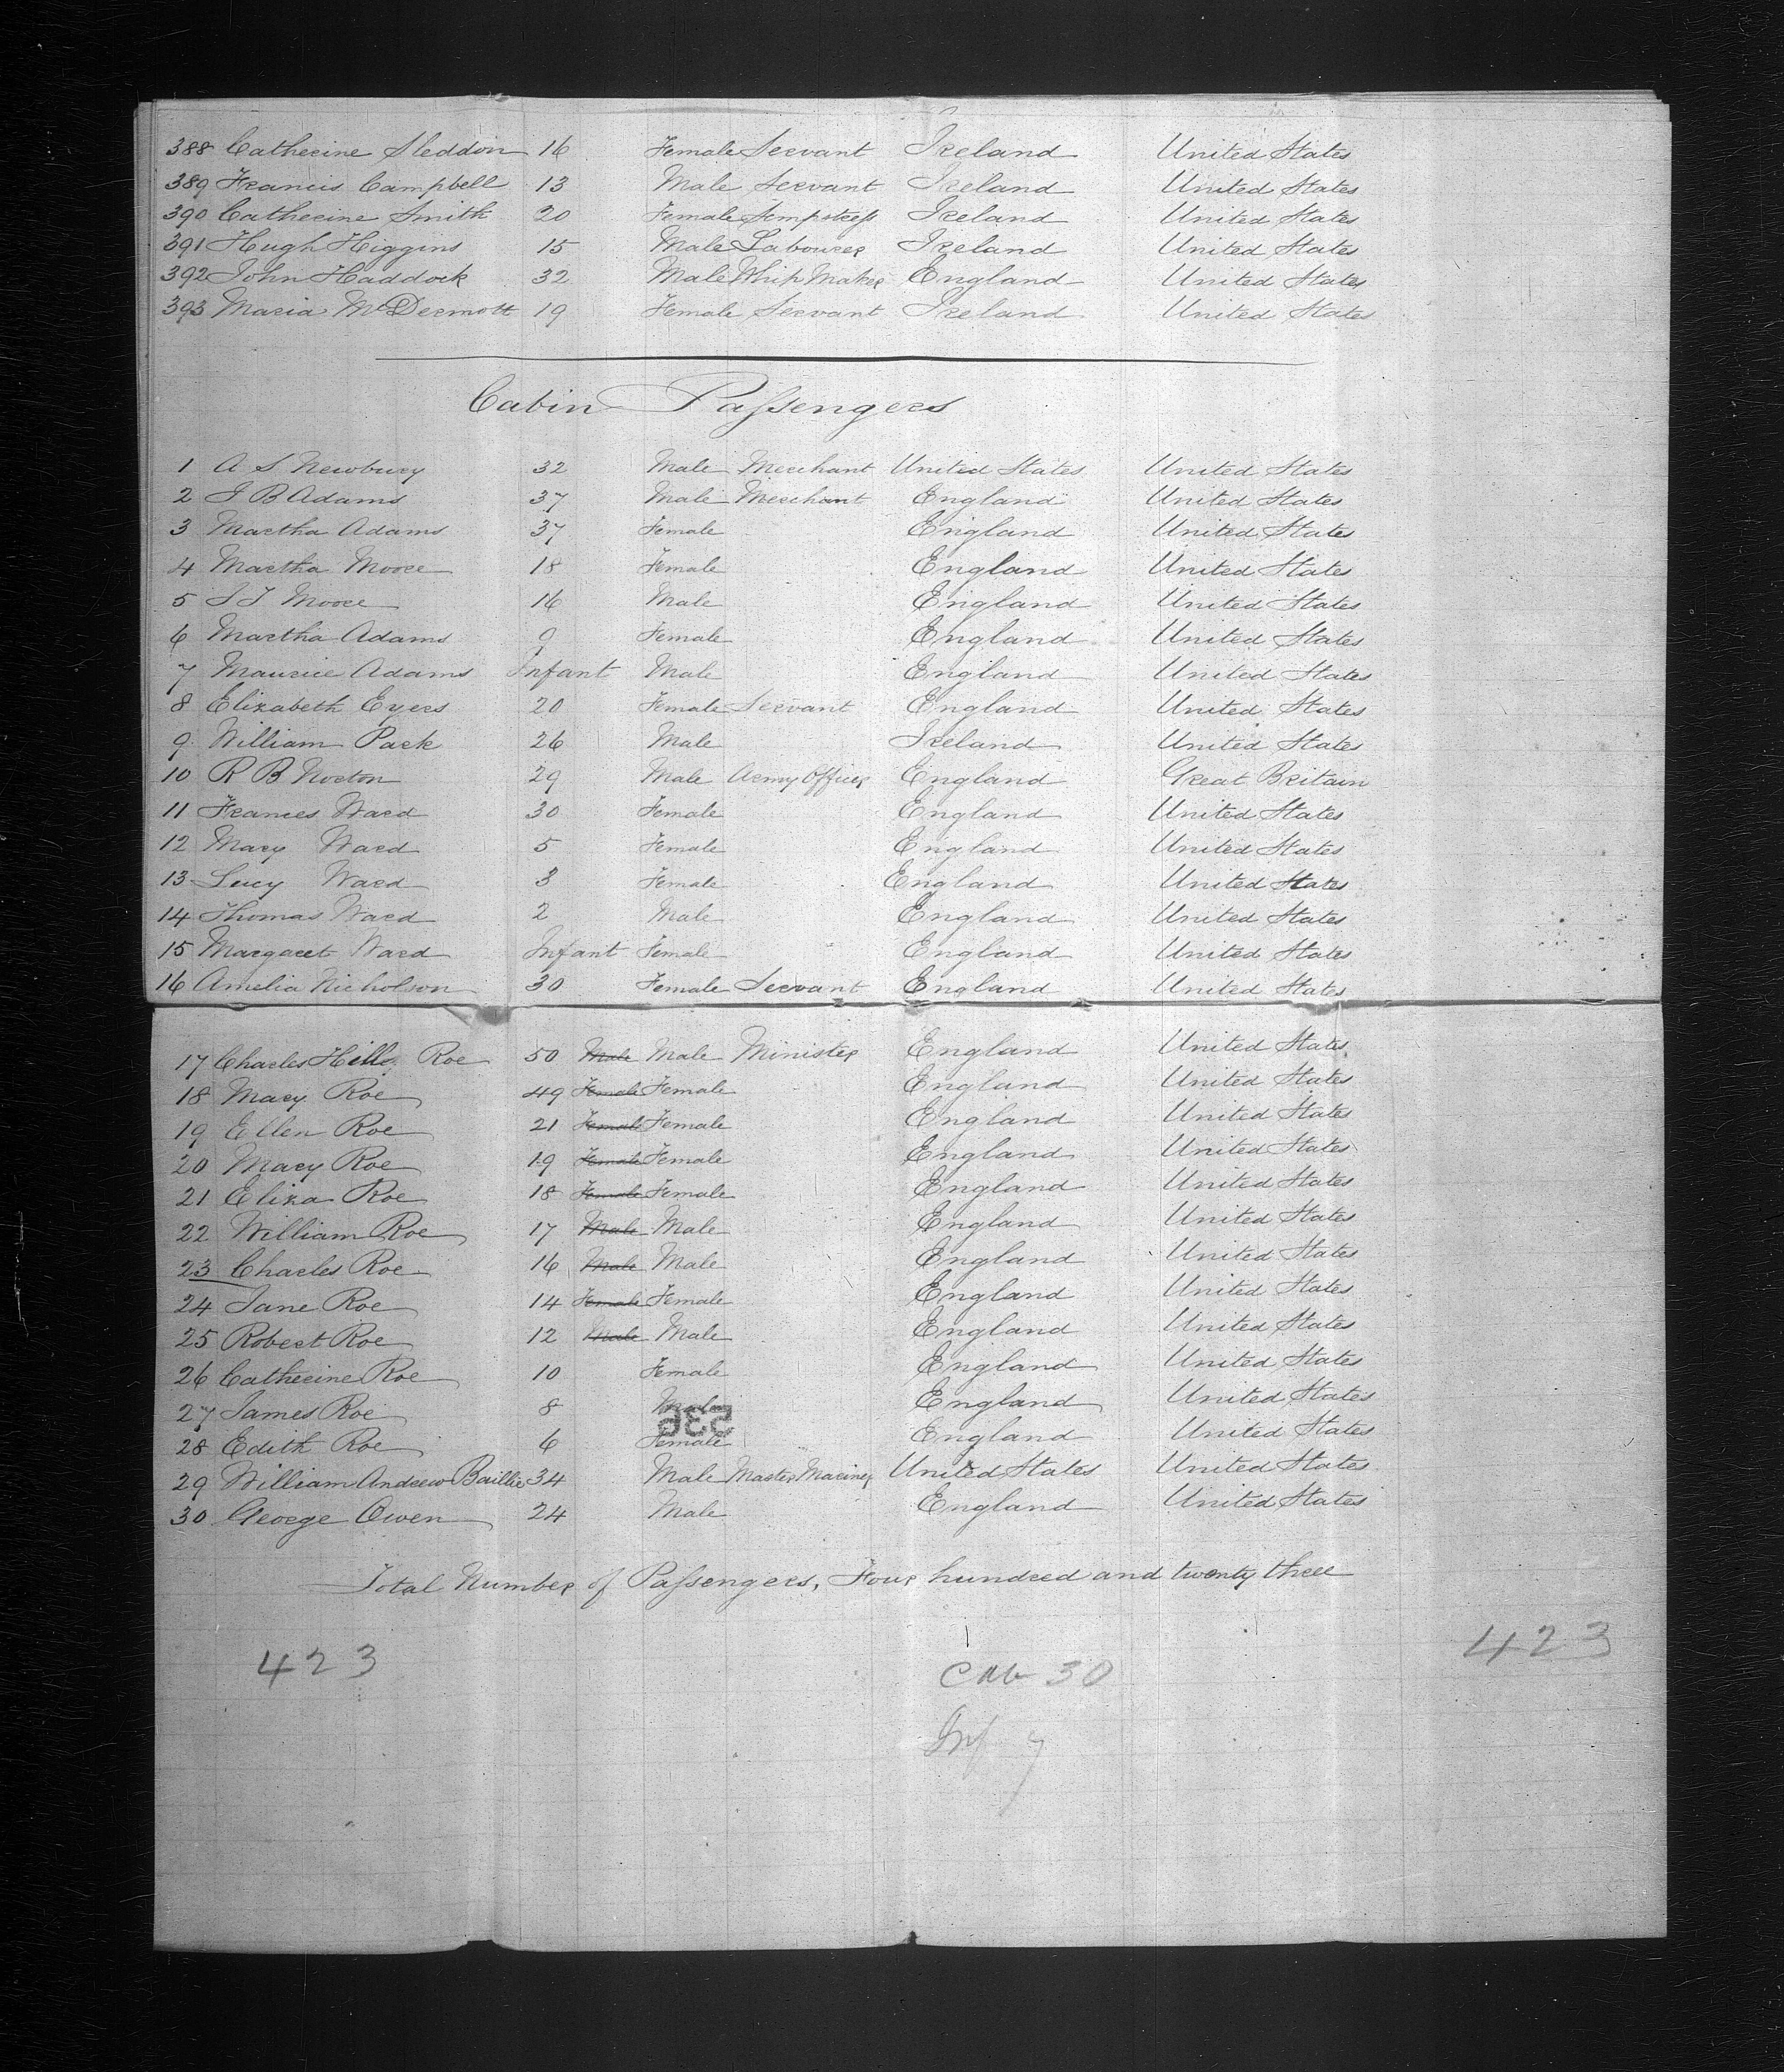 388 Catherine Sleddon 16 Female Servant Ireland United States
389 Francis Campbell 13 Male Servant Ireland United States
390 Catherine Smith 20 Female Sempstress Ireland United States
391 Hugh Higgins 15 Male Labourer Ireland United States
392 John Haddock 32 Male Whip Maker England United States
393 Maria McDermott 19 Female Servant Ireland United States
Cabin Passengers
1 A S Newbury 32 Male Merchant United States United States
2 J B Adams 37 Male Merchant England United States
3 Martha Adams 37 Female England United States
4 Martha Moore 18 Female England United States
5 J J Moore 16 Male England United States
6 Martha Adams 9 Female England United States
7 Maurice Adams Infant Male England United States
8 Elizabeth Eyers 20 Female Servant England United States
9 William Park 26 Male Ireland United States
10 R B Norton 29 Male Army Officer England Great Britain
11 Frances Ward 30 Female England United States
12 Mary Ward 5 Female England United States
13 Lucy Ward 3 Female England United States
14 Thomas Ward 2 Male England United States
15 Margaret Ward Infant Female England United States
16 Amelia Nicholson 30 Female Servant England United States
17 Charles Hills Roe 50 Male Male Minister England United States
18 Mary Roe 49 Female Female England United States
19 Ellen Roe 21 Female Female England United States
20 Mary Roe 19 Female Female England United States
21 Eliza Roe 18 Female Female England United States
22 William Roe 17 Male Male England United States
23 Charles Roe 16 Male Male England United States
24 Jane Roe 14 Female Female England United States
25 Robert Roe 12 Male Male England United States
26 Catherine Roe 10 Female England United States
27 James Roe 8 Male England United States
28 Edith Roe 6 Female England United States
29 William Andrew Baillie 34 Male Master Mariner United States United States
30 George Owen 24 Male England United States
Total Number of Passengers, Four hundred and twenty three
423 423
Cab 30
Inf 7